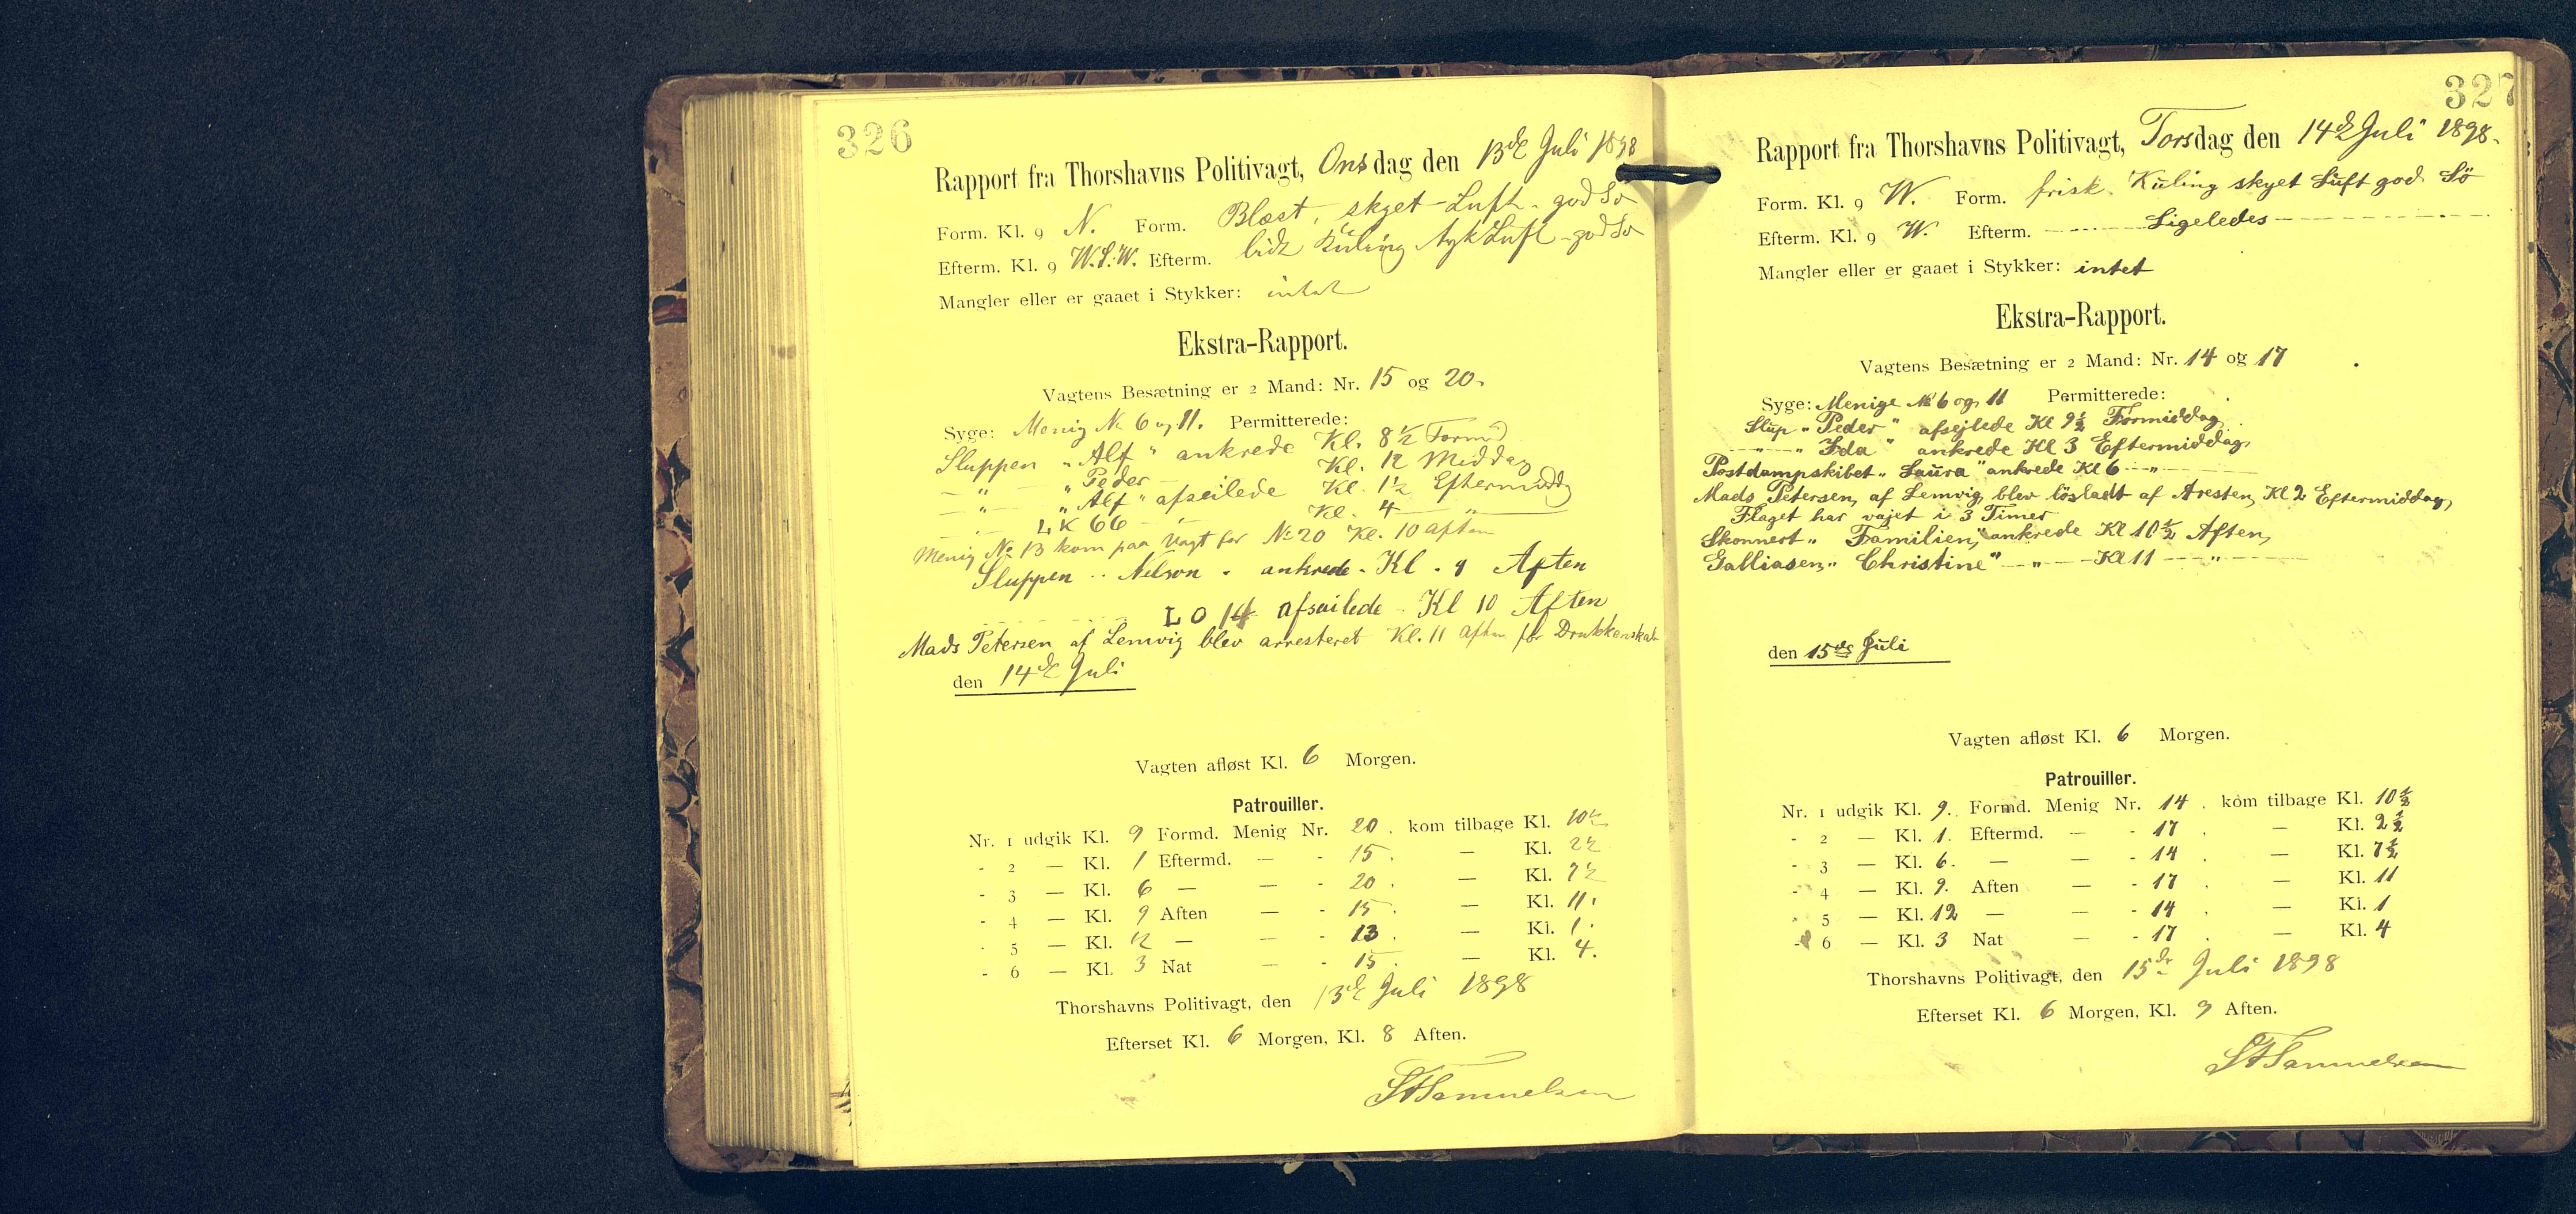 326
Rapport fra Thorshavns Politivagt, Onsdag den 13de Juli 1898
Form. Kl. 9 N. Form. Blæst, skyet Luft. god Sø
Efterm. Kl. 9 W.S.W. Efterm. lidt Kuling tyk Luft god Sø
Mangler eller er gaaet i Stykker: intet
Ekstra-Rapport.
Vagtens Besætning er 2 Mand: Nr. 15 og 20.
Syge: Menig № 6 og 11. Permitterede:
Sluppen „Alf" ankrede Kl. 8½ Formd
— " — „Peder — Kl. 12 Middag
— " — „Alf" afseilede Kl. 1½ Eftermiddg
— LK 66 — " — Kl. 4 — " —
Menig № 13 kom paa Vagt for № 20 Kl. 10 aften
Sluppen „Nelson" ankrede Kl. 9 Aften
LO 14 afsailede Kl 10 Aften
Mads Petersen af Lemvig blev arresteret Kl. 11 Aften for Drukkenskab
den 14de Juli
Vagten afløst Kl. 6 Morgen.
Patrouiller.
Nr. 1 udgik Kl. 9 Formd. Menig Nr. 20. kom tilbage Kl. 10½
- 2 — Kl. 1 Eftermd. — - 15. — Kl. 2½
- 3 — Kl. 6 — — - 20. — Kl. 7½
- 4 — Kl. 9 Aften — - 15. — Kl. 11.
- 5 — Kl. 12 — — - 13. — Kl. 1.
- 6 — Kl. 3 Nat — - 15. — Kl. 4.
Thorshavns Politivagt, den 13de Juli 1898
Efterset Kl. 6 Morgen, Kl. 8 Aften.
Samuelsen
327
Rapport fra Thorshavns Politivagt, Torsdag den 14de Juli 1898.
Form. Kl. 9 W. Form. frisk. Kuling skyet Luft god Sö
Efterm. Kl. 9 W. Efterm. — Ligeledes —
Mangler eller er gaaet i Stykker: intet
Ekstra-Rapport.
Vagtens Besætning er 2 Mand: Nr. 14 og 17
Syge: Menige № 6 og 11 Permitterede:
Slup „Peder" afsejlede Kl 9½ Formiddag.
— " — „Ida" ankrede Kl 3 Eftermiddag,
Postdampskibet „Laura" ankrede Kl 6 — " —
Mads Petersen, af Lemvig, blev lösladt af Aresten, Kl 2 Eftermiddag,
Flaget har vajet i 3 Timer
Skonnert „Familien," ankrede Kl 10½ Aften,
Galliasen, „Christine" — " — Kl 11 — " —
den 15de Juli
Vagten afløst Kl. 6 Morgen.
Patrouiller.
Nr. 1 udgik Kl. 9. Formd. Menig Nr. 14. kom tilbage Kl. 10½
- 2 — Kl. 1. Eftermd. — - 17. — Kl. 2½
- 3 — Kl. 6. — — - 14. — Kl. 7½
- 4 — Kl. 9. Aften — - 17. — Kl. 11
- 5 — Kl. 12 — — - 14. — Kl. 1
- 6 — Kl. 3 Nat — - 17. — Kl. 4
Thorshavns Politivagt, den 15de Juli 1898
Efterset Kl. 6 Morgen, Kl. 9 Aften.
Samuelsen